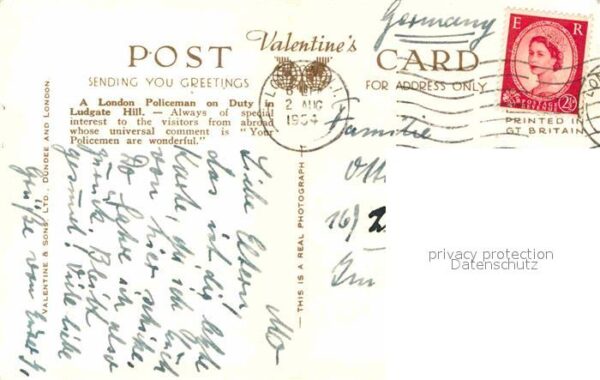 Germany
Valentine's
POST CARD
SENDING YOU GREETINGS
FOR ADDRESS ONLY
E R
POSTAGE
2½
PRINTED IN
GT BRITAIN
2 AUG
1954
A London Policeman on Duty in
Ludgate Hill. — Always of special
interest to the visitors from abroad
whose universal comment is "Your
Policemen are wonderful."
VALENTINE & SONS, LTD., DUNDEE AND LONDON.
— THIS IS A REAL PHOTOGRAPH —
Familie
Ott
16/2
privacy protection
Datenschutz
Mo
Liebe Eltern!
Das ist die letzte
Karte, die ich Euch
von hier schicke.
Do fahre ich also
zurück. Bleibt
gesund! Viele liebe
Grüße von Eurer